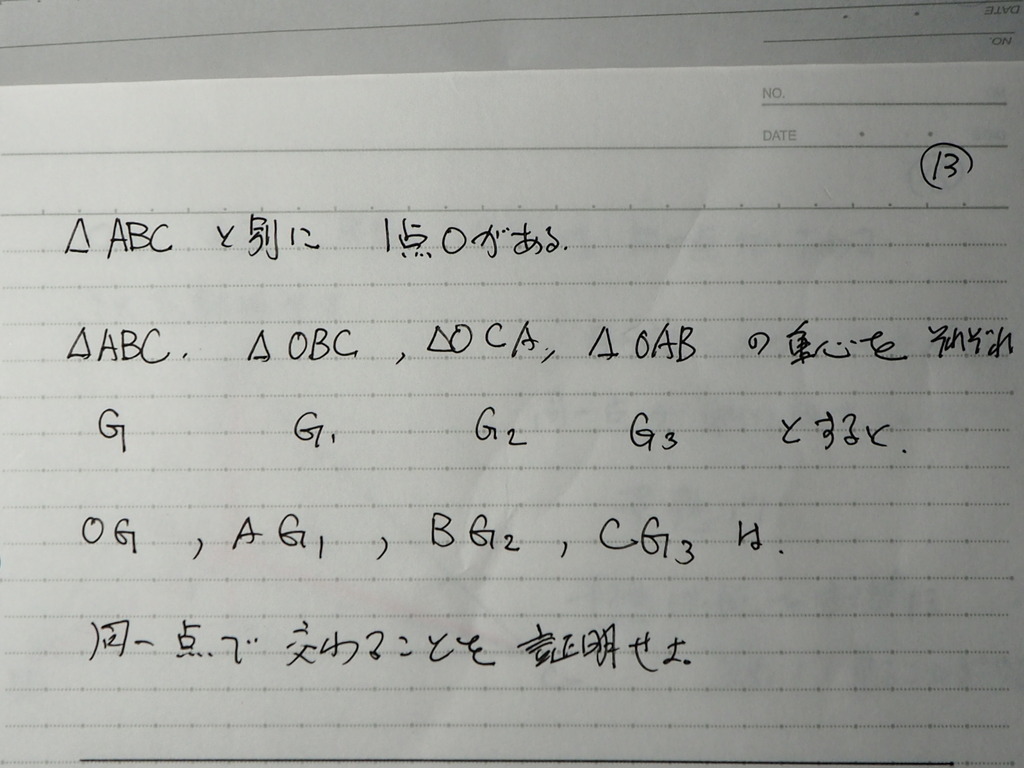 DATE
NO
NO.
DATE
⑬
△ABC と別に 1点Oがある.
△ABC. △OBC, △OCA, △OAB の重心を それぞれ
G G₁ G₂ G₃ とすると.
OG, AG₁, BG₂, CG₃ は.
同一点で 交わることを 証明せよ.